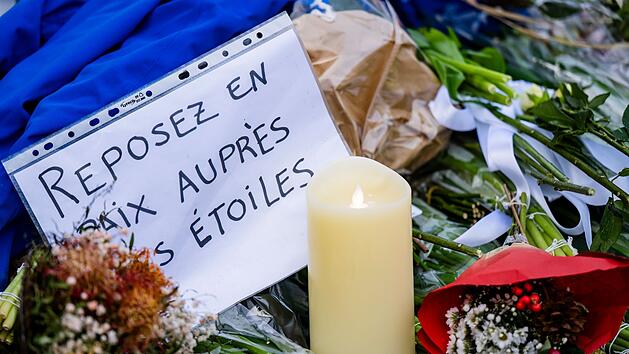 REPOSEZ EN
PAIX AUPRÈS
ÉTOILES